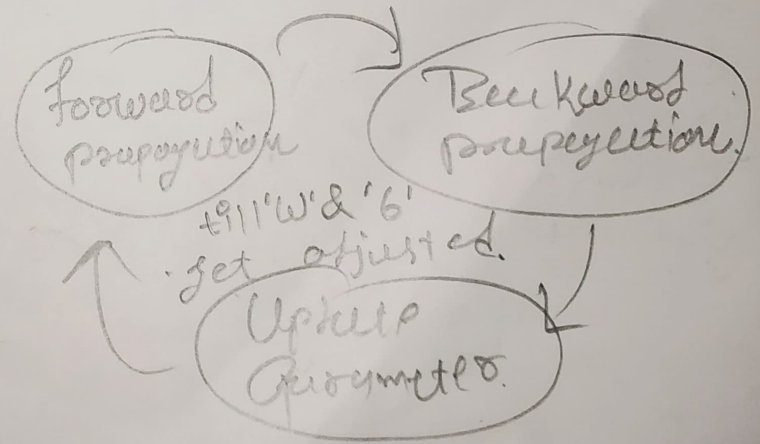 forward
propagation
Backward
propagation.
till 'w' & 'b'
get adjusted.
Update
Parameter.